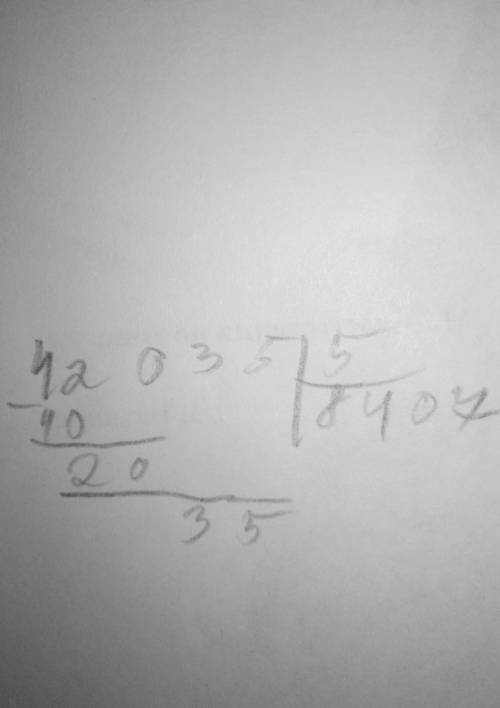 42035 5
- 8407
40
20
35